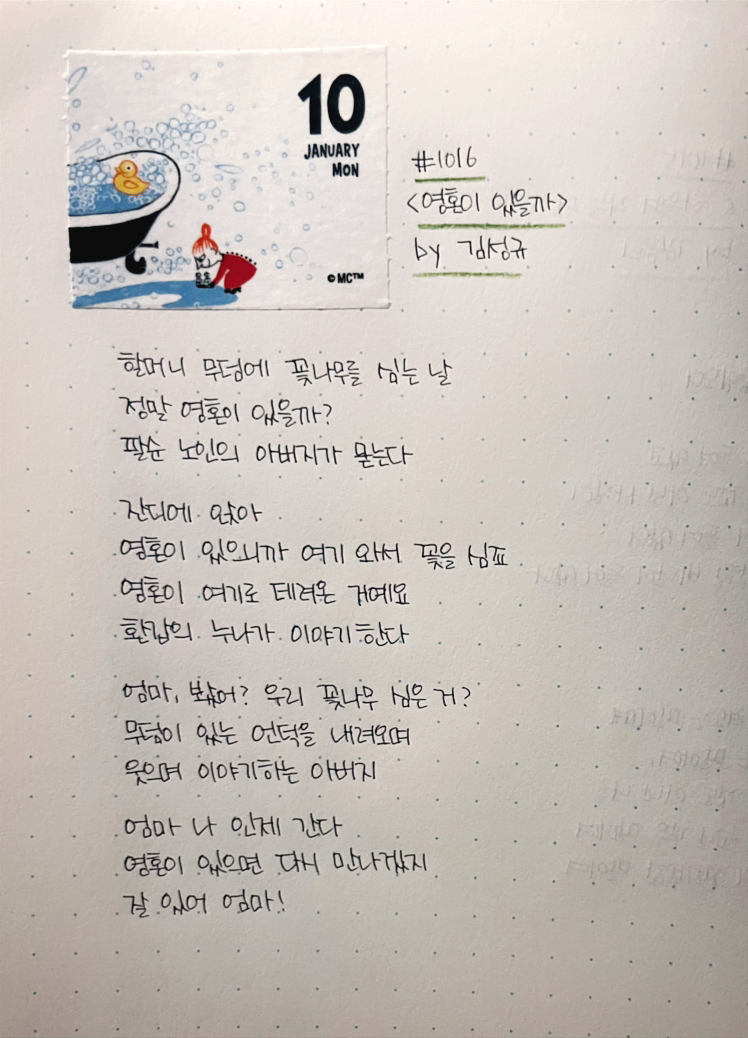 10
JANUARY
MON
© MC™
#1016
<영혼이 있을까>
by 김성규
할머니 무덤에 꽃나무를 심는 날
정말 영혼이 있을까?
팔순 노인의 아버지가 묻는다
잔디에 앉아
영혼이 있으니까 여기 와서 꽃을 심죠
영혼이 여기로 데려온 거예요
환갑의 누나가 이야기한다
엄마, 봤어? 우리 꽃나무 심은 거?
무덤이 있는 언덕을 내려오며
웃으며 이야기하는 아버지
엄마 나 인제 간다
영혼이 있으면 다시 만나겠지
잘 있어 엄마!